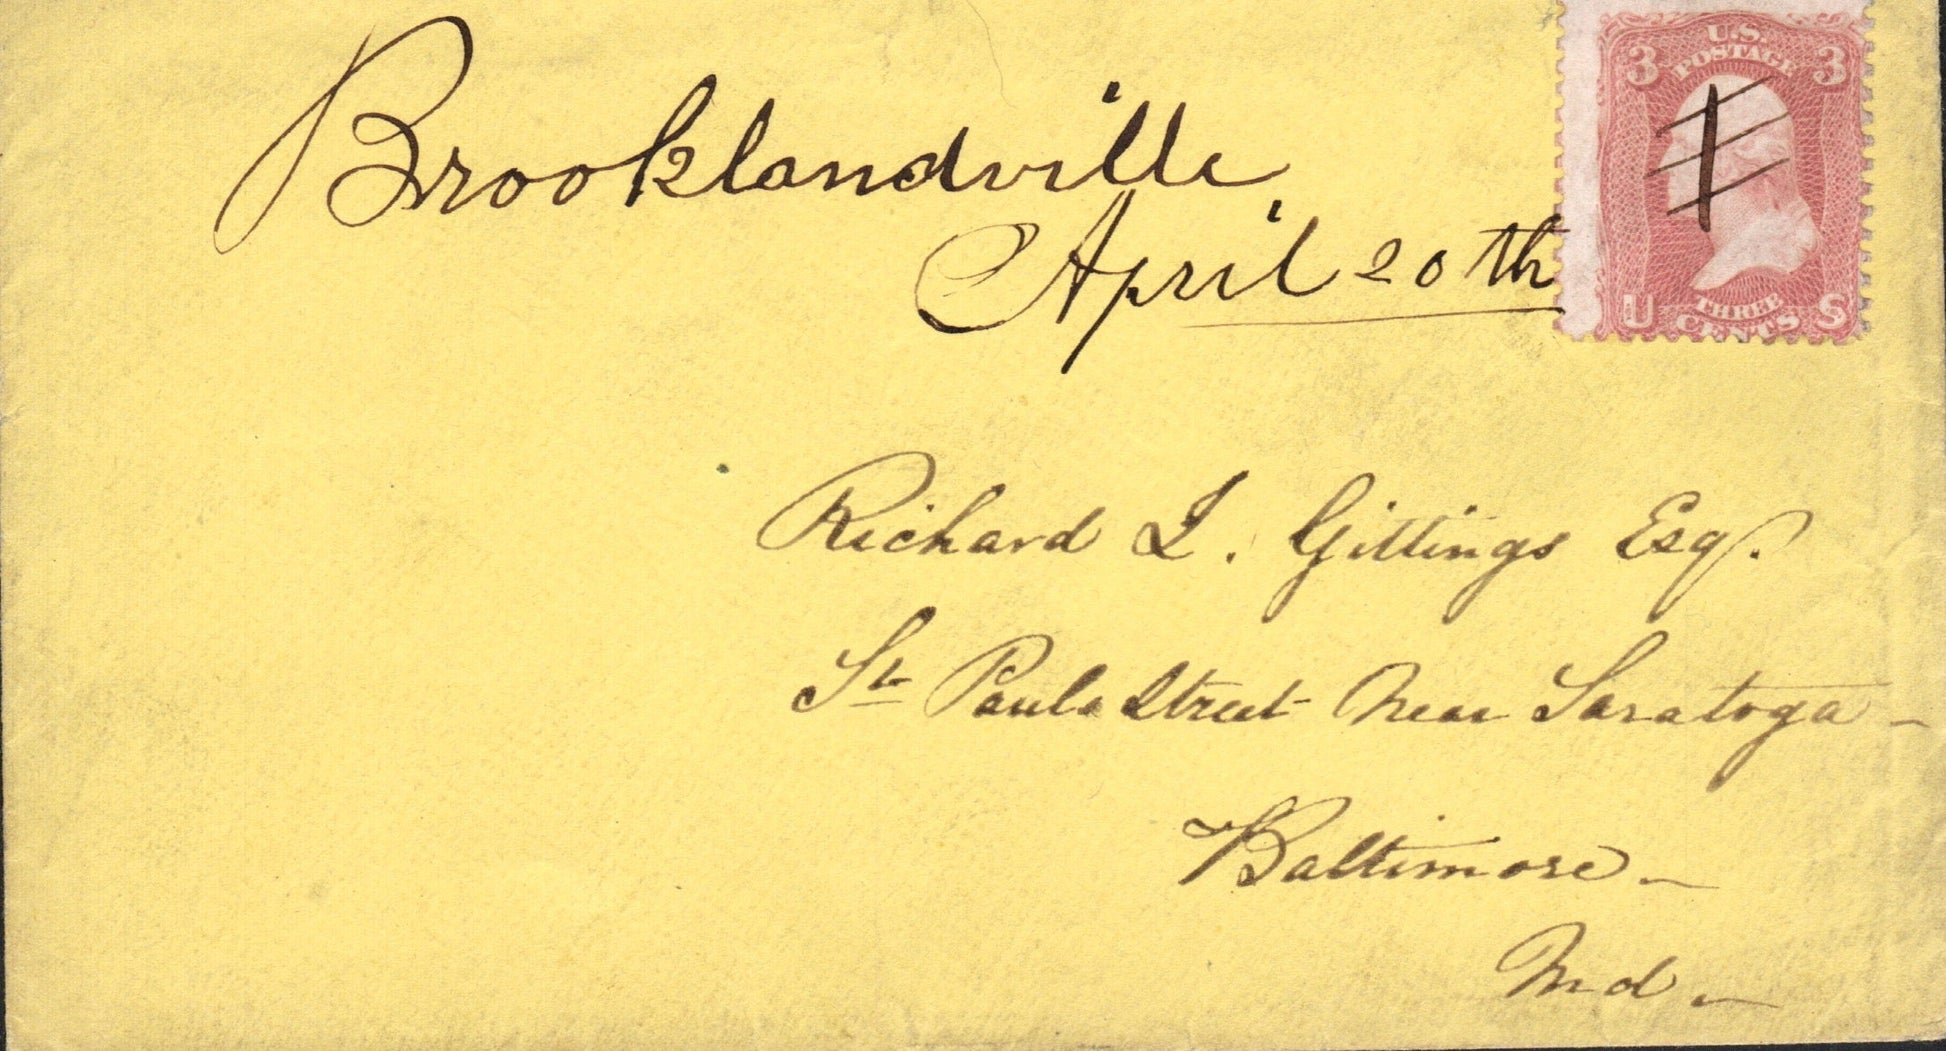 Brooklandville,
April 20th
U.S.
POSTAGE
3 3
U THREE S
CENTS
Richard J. Gittings Esq.
St Pauls Street near Saratoga -
Baltimore -
Md -